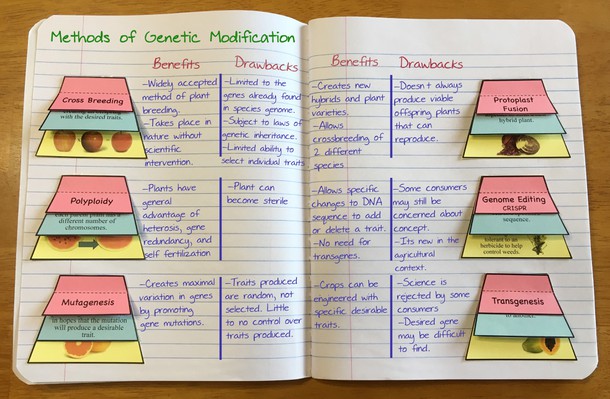 Methods of Genetic Modification
Benefits
Drawbacks
Cross Breeding
with the desired traits.
-Widely accepted
method of plant
breeding.
-Takes place in
nature without
scientific
intervention.
-Limited to the
genes already found
in species genome.
-Subject to laws of
genetic inheritance.
-Limited ability to
select individual traits
Polyploidy
different number of
chromosomes.
-Plants have
general
advantage of
heterosis, gene
redundancy, and
self fertilization
-Plant can
become sterile
Mutagenesis
in hopes that the mutation
will produce a desirable
trait.
-Creates maximal
variation in genes
by promoting
gene mutations.
-Traits produced
are random, not
selected. Little
to no control over
traits produced.
Benefits
Drawbacks
-Creates new
hybrids and plant
varieties.
-Allows
crossbreeding of
2 different
species
-Doesn t always
produce viable
offspring plants
that can
reproduce.
Protoplast
Fusion
hybrid plant.
-Allows specific
changes to DNA
sequence to add
or delete a trait.
-No need for
transgenes.
-Some consumers
may still be
concerned about
concept.
-Its new in the
agricultural
context.
Genome Editing
CRISPR
sequence.
tolerant to an
herbicide to help
control weeds.
-Crops can be
engineered with
specific desirable
traits.
-Science is
rejected by some
consumers
-Desired gene
may be difficult
to find.
Transgenesis